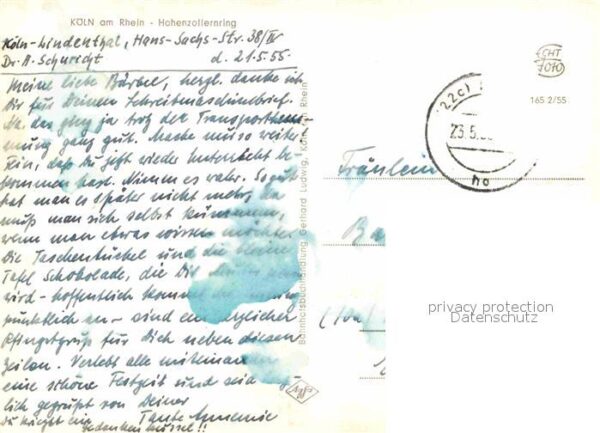 KÖLN am Rhein - Hohenzollernring
Köln-Lindenthal, Hans-Sachs-Str. 38/IV
Dr. A. Schurecht d. 21.5.55
Meine liebe Bärbel, herzl. danke ich
Dir für Deinen Schreibmaschinbrief.
Na, das ging ja trotz der
ganz gut. Mache nur so weiter.
Fein, daß Du jetzt wieder Unterricht be-
kommen hast. Nimm es wahr. So gut
hat man es später nicht mehr, da
muß man sich selbst kümmern,
wenn man etwas wissen möchte.
Die Taschentücher und die kleine
Tafel Schokolade, die Dir
wird - hoffentlich kommt
pünktlich an - sind ein herzlicher
Pfingstgruß für Dich neben diesen
Zeilen. Verlebt alle miteinander
eine schöne Festzeit und seid
lich gegrüßt von Deiner
Tante Annemie
Du kriegst ein
Gedankenbüssel!!
Bahnhofsbuchhandlung Gerhard Ludwig, Köln am Rhein
Agfa
165 2/55
(22c)
23.5.
Fräulein
Ba
privacy protection
Datenschutz